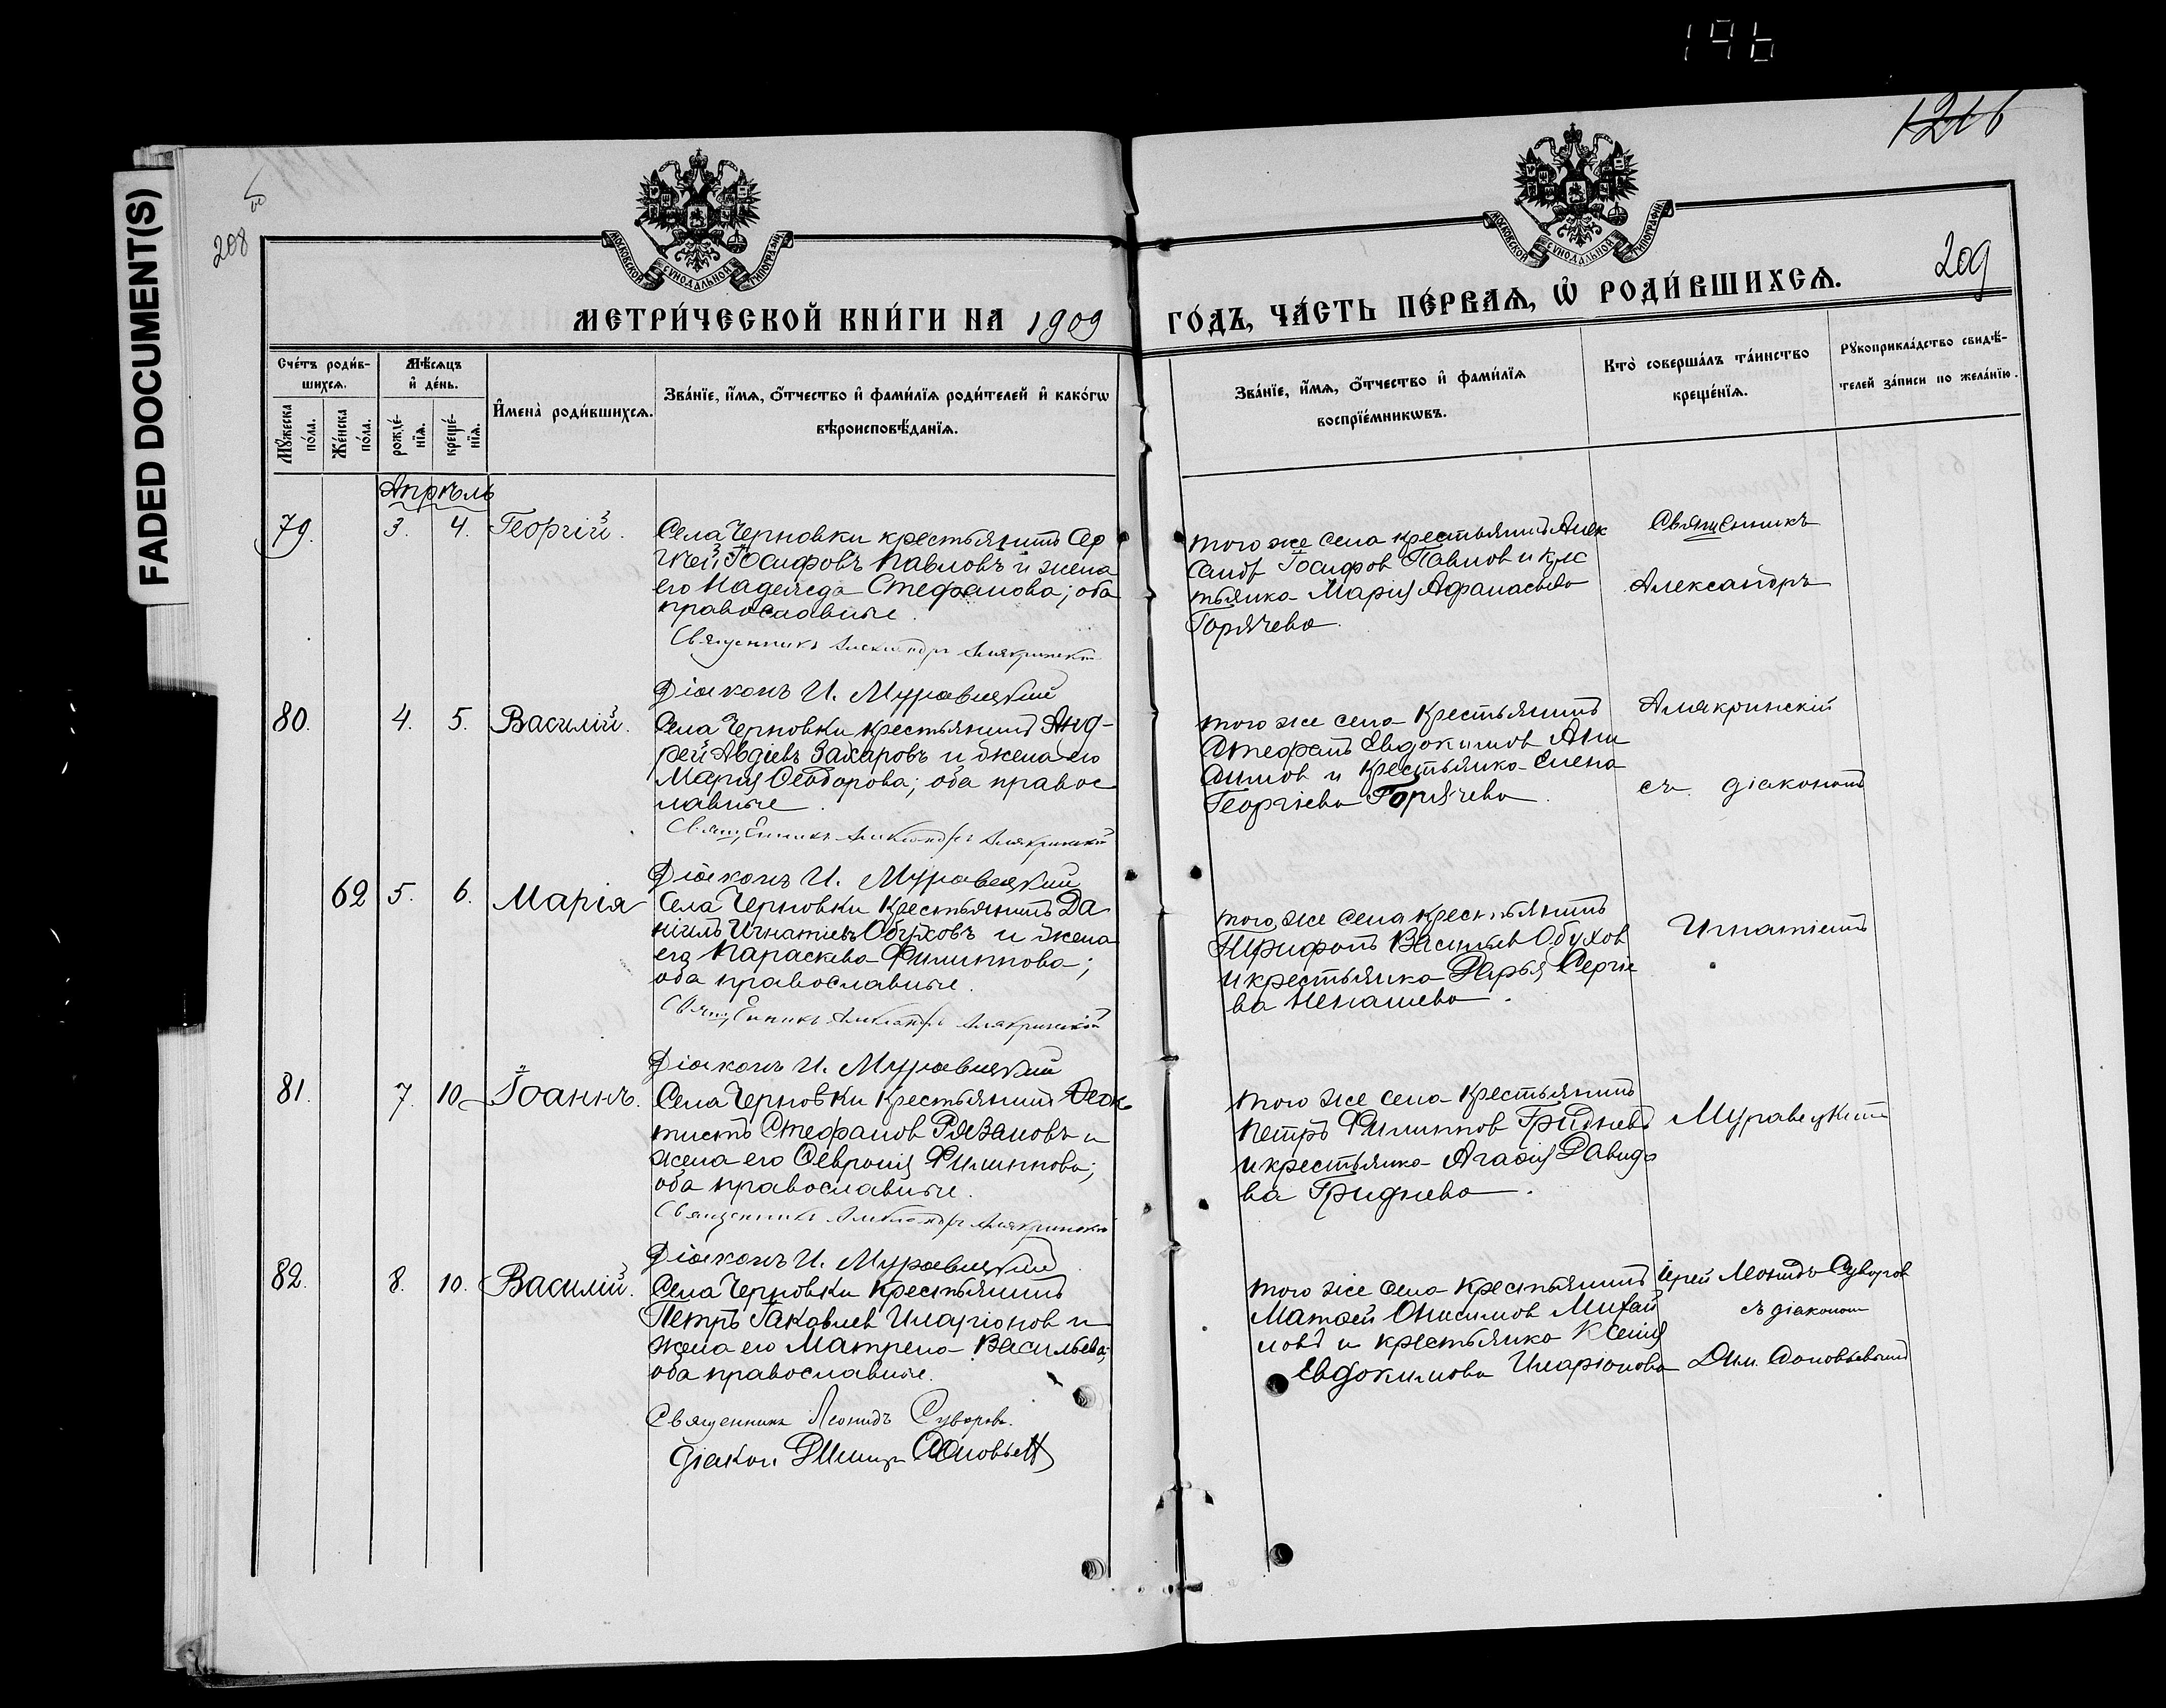 196
FADED DOCUMENT(S)
208
1216
209
МОСКОВСКОЙ СѴНОДАЛЬНОЙ ТИПОГРАФІИ
МОСКОВСКОЙ СѴНОДАЛЬНОЙ ТИПОГРАФІИ
МЕТРИ́ЧЕСКОЙ КНИ́ГИ НА 1909
ГО́ДЪ, ЧА́СТЬ ПЕ́РВАѦ, Ѡ҆ РОДИ́ВШИХСѦ.
Счéтъ роди́в-
шихсѧ.
Мꙋ́жеска
по́ла.
Жéнска
по́ла.
Мѣ́сѧцъ
и҆ дéнь.
рождé-
нїѧ.
крещé-
нїѧ.
И҆мена̀ роди́вшихсѧ.
Зва́нїе, и҆́мѧ, ѻ҆́тчество и҆ фами́лїѧ роди́телей и҆ како́гѡ
вѣроисповѣ́данїѧ.
Зва́нїе, и҆́мѧ, ѻ҆́тчество и҆ фами́лїѧ
воспрїéмникѡвъ.
Кто̀ соверша́лъ та́инство
крещéнїѧ.
Рꙋкоприкла́дство свидѣ́-
телей за́писи по жела́нїю.
Апрѣль
79. 3. 4. Георгій.
Села Черновки крестьянинъ Сер
гѣй Іосифовъ Павловъ и жена
его Надежда Стефанова; оба
православные.
Священникъ Александръ Алякринскій
Діаконъ И. Муравецкій
того же села крестьянинъ Алек
сандр Іосифов Павлов и крес
тьянка Марія Афанасьева
Горячева.
Священникъ
Александръ
80. 4. 5. Василій.
Села Черновки крестьянинъ Анд-
рей Авдіевъ Захаровъ и жена его
Марія Ѳеодорова; оба правос
лавные.
Священникъ Александръ Алякринскій
Діаконъ И. Муравецкій
того же села крестьянинъ
Стефанъ Евдокимов Ани
симов и крестьянка Елена
Георгіева Горячева.
Алякринскій
съ діакономъ
62 5. 6. Марія
Села Черновки крестьянинъ Да
ніилъ Игнатіевъ Обуховъ и жена
его Параскева Филиппова;
оба православные.
Священникъ Александръ Алякринскій
Діаконъ И. Муравецкій
того же села крестьянинъ
Трифонъ Васильев Обухов
и крестьянка Дарья Сергіе
ва Ненашева.
Игнатіемъ
81. 7. 10 Іоаннъ.
Села Черновки крестьянинъ Ѳеок
тистъ Стефанов Рязановъ и
жена его Ѳевронія Филиппова;
оба православные.
Священникъ Александръ Алякринскій
Діаконъ И. Муравецкій
того же села крестьянинъ
Петръ Филиппов Гридневъ
и крестьянка Агаѳія Давидо
ва Гриднева.
Муравецким
82. 8. 10. Василій.
Села Черновки крестьянинъ
Петръ Іаковлев Иларіонов и
жена его Матрена Васильева;
оба православные.
Священникъ Леонидъ Суворовъ.
Діакон Димитр Соловьев
того же села крестьянинъ
Матѳей Онисимов Михай
ловъ и крестьянка Ксенія
Евдокимова Иларіонова
Іерей Леонидъ Суворов
съ діаконом
Дим. Соловьевымъ